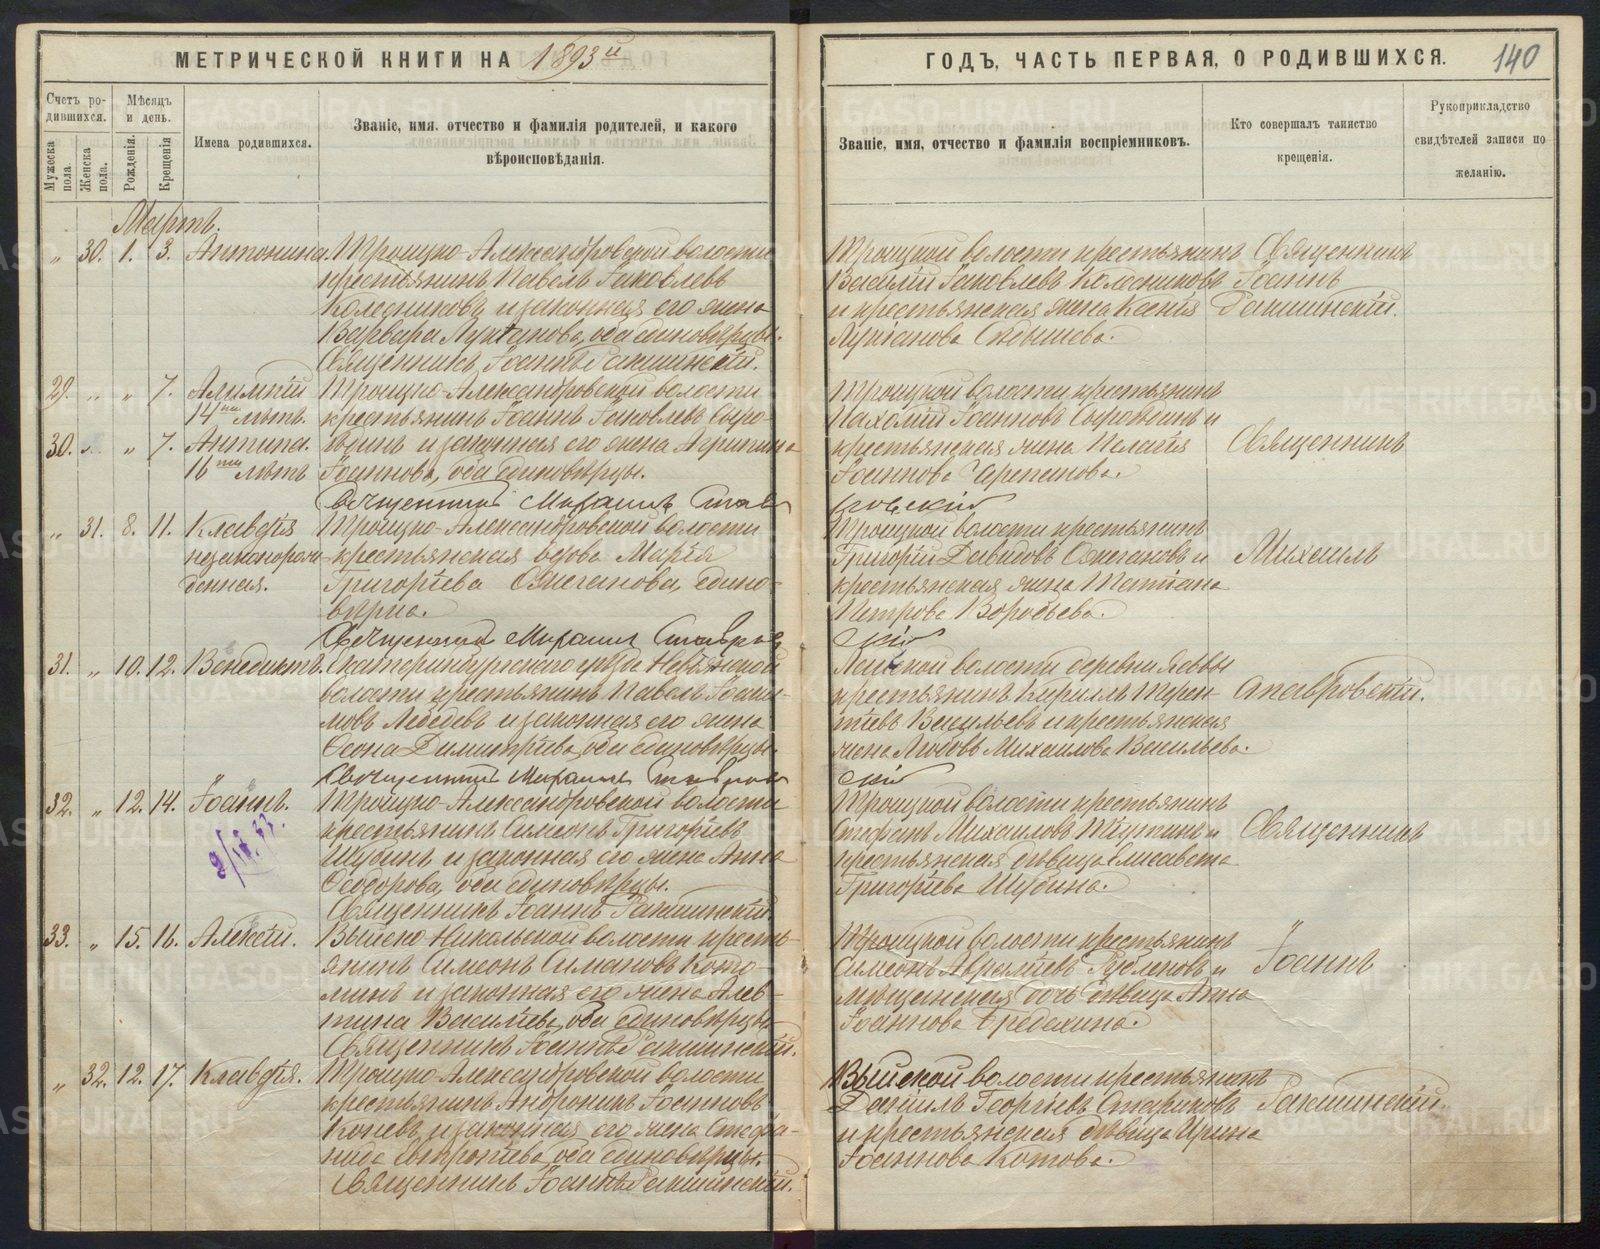 МЕТРИЧЕСКОЙ КНИГИ НА 1893й
Счетъ ро-
дившихся.
Мужеска пола.
Женска пола.
Мѣсяцъ
и день.
Рожденія.
Крещенія
Имена родившихся.
Званіе, имя, отчество и фамилія родителей, и какого
вѣроисповѣданія.
Мартъ.
„ 30. 1. 3. Антонина. Троицко-Александровской волости
крестьянинъ Павелъ Іаковлевъ
Колесниковъ и законная его жена
Варвара Лукіанова, оба единовѣрцы.
Священникъ Іоаннъ
29. „ „ 7. Алимпій Троицко-Александровской волости
14ти лѣтъ. крестьянинъ Іоаннъ Іаковлевъ Сыро-
30. „ „ 7. Антипа. и законная его жена Агрипина
16ти лѣтъ Іоаннова, оба единовѣрцы.
Священникъ Михаилъ Став
„ 31. 8. 11. Клавдія Троицко-Александровской волости
незаконорож- крестьянская вдова Марія
денная. Григоріева Ожеганова, едино-
вѣрка.
Священникъ Михаилъ Ставров
31. „ 10. 12. Венедиктъ. Екатеринбургскаго уѣзда Невьянской
волости крестьянинъ Павелъ Іоаки-
мовъ Лебедевъ и законная его жена
Ѳеона Димитріева, оба единовѣрцы.
Священникъ Михаилъ Ставров
32. „ 12. 14. Іоаннъ. Троицко-Александровской волости
крестьянинъ Симеонъ Григоріевъ
Шубинъ и законная его жена Анна
Ѳеодорова, оба единовѣрцы.
Священникъ Іоаннъ
33. „ 15. 16. Алексій. Выйско-Никольской волости кресть-
янинъ Симеонъ Симеоновъ
и законная его жена Алев-
тина Василіева, оба единовѣрцы.
Священникъ Іоаннъ
„ 32. 12. 17. Клавдія. Троицко-Александровской волости
крестьянинъ Андроникъ Іоанновъ
Коневъ и законная его жена Стефа-
нида оба единовѣрцы.
Священникъ Іоаннъ
ГОДЪ, ЧАСТЬ ПЕРВАЯ, О РОДИВШИХСЯ. 140
Званіе, имя, отчество и фамилія воспріемниковъ.
Кто совершалъ таинство
крещенія.
Рукоприкладство
свидѣтелей записи по
желанію.
Троицкой волости крестьянинъ Священникъ
Василій Іаковлевъ Колесниковъ Іоаннъ
и крестьянская жена Ксенія
Лукіанова
Троицкой волости крестьянинъ
Пахомій Іоанновъ и
крестьянская жена Пелагія Священникъ
Іоаннова Черепанова.
ровскій
Троицкой волости крестьянинъ
Григорій Давидовъ Ожегановъ и Михаилъ
крестьянская жена Татіана
Петрова Воробьева.
скій
Лайской волости деревни
крестьянинъ Кириллъ Терен- Ставровскій.
тіевъ Васильевъ и крестьянская
жена Любовь Михаилова Васильева.
скій
Троицкой волости крестьянинъ
Стефанъ Михаиловъ и Священникъ
крестьянская дѣвица Елисавета
Григоріева Шубина.
Троицкой волости крестьянинъ
Симеонъ и Іоаннъ
мѣщанская дочь дѣвица Анна
Іоаннова Бредихина.
Выйской волости крестьянинъ
Даніилъ Георгіевъ Стариковъ
и крестьянская дѣвица Ирина
Іоаннова Котова.
METRIKI.GASO-URAL.RU